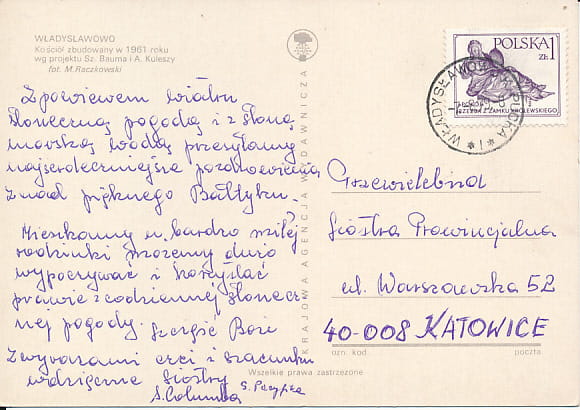 WŁADYSŁAWOWO
Kościół zbudowany w 1961 roku
wg projektu Sz. Bauma i A. Kuleszy
fot. M. Raczkowski
Z powiewem wiatru
słoneczną pogodą i z słoną
morską wodą przesyłamy
najserdeczniejsze pozdrowienia
znad pięknego Bałtyku.
Mieszkamy u bardzo miłej
rodzinki możemy dużo
wypoczywać i korzystać
prawie z codziennej słonecz
nej pogody. Szczęść Boże
Z wyrazami czci i szacunku
wdzięczne Siostry
S. Columba
KRAJOWA AGENCJA WYDAWNICZA
POLSKA 1
ZŁ
RZEŹBA Z ZAMKU KRÓLEWSKIEGO
WŁADYSŁAWOWO K. PUCKA
Przewielebna
Siostra Prowincjalna
ul. Warszawska 52
40-008 KATOWICE
ozn. kod
poczta
Wszelkie prawa zastrzeżone